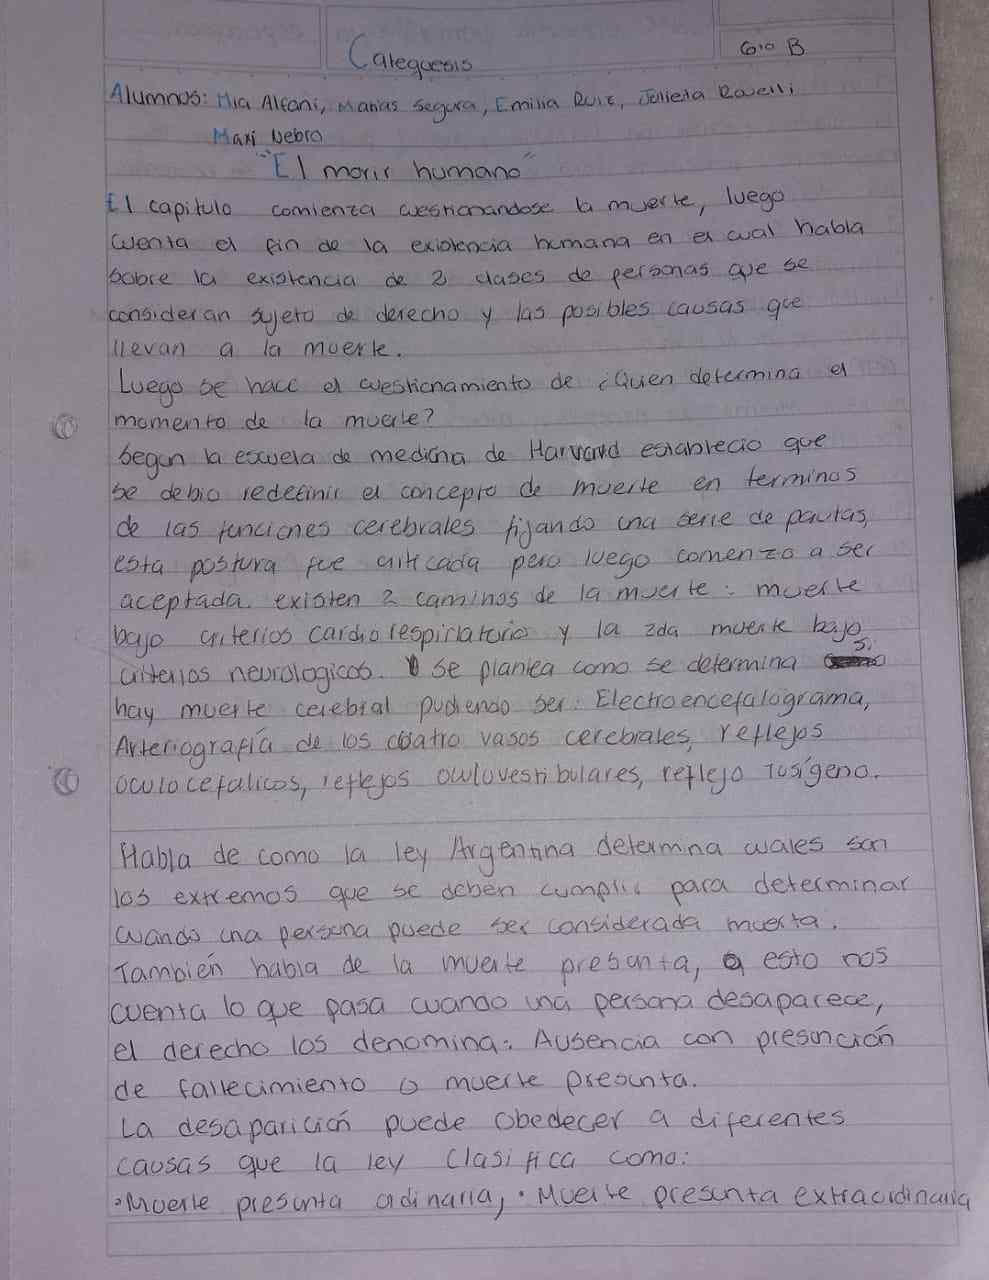 Catequesis
6to B
Alumnos: Mia Alfani, Matias Segura, Emilia Ruiz, Julieta Ravelli
Maxi Nebro
"El morir humano"
El capitulo comienza cuestionandose la muerte, luego
cuenta el fin de la existencia humana en el cual habla
sobre la existencia de 2 clases de personas que se
consideran sujeto de derecho y las posibles causas que
llevan a la muerte.
Luego se hace el cuestionamiento de ¿Quien determina el
momento de la muerte?
Segun la escuela de medicina de Harvard establecio que
se debio redefinir el concepto de muerte en terminos
de las funciones cerebrales fijando una serie de pautas,
esta postura fue criticada pero luego comenzo a ser
aceptada. existen 2 caminos de la muerte: muerte
bajo criterios cardiorespiriatorio y la 2da muerte bajo
criterios neurologicos. Se plantea como se determina si
hay muerte cerebral pudiendo ser: Electroencefalograma,
Arteriografía de los cuatro vasos cerebrales, reflejos
oculocefalicos, reflejos oculovestibulares, reflejo Tusígeno.
Habla de como la ley Argentina determina cuales son
los extremos que se deben cumplir para determinar
cuando una persona puede ser considerada muerta.
También habla de la muerte presunta, esto nos
cuenta lo que pasa cuando una persona desaparece,
el derecho los denomina: Ausencia con presunción
de fallecimiento o muerte presunta.
La desaparición puede obedecer a diferentes
causas que la ley clasifica como:
• Muerte presunta ordinaria, • Muerte presunta extraordinaria